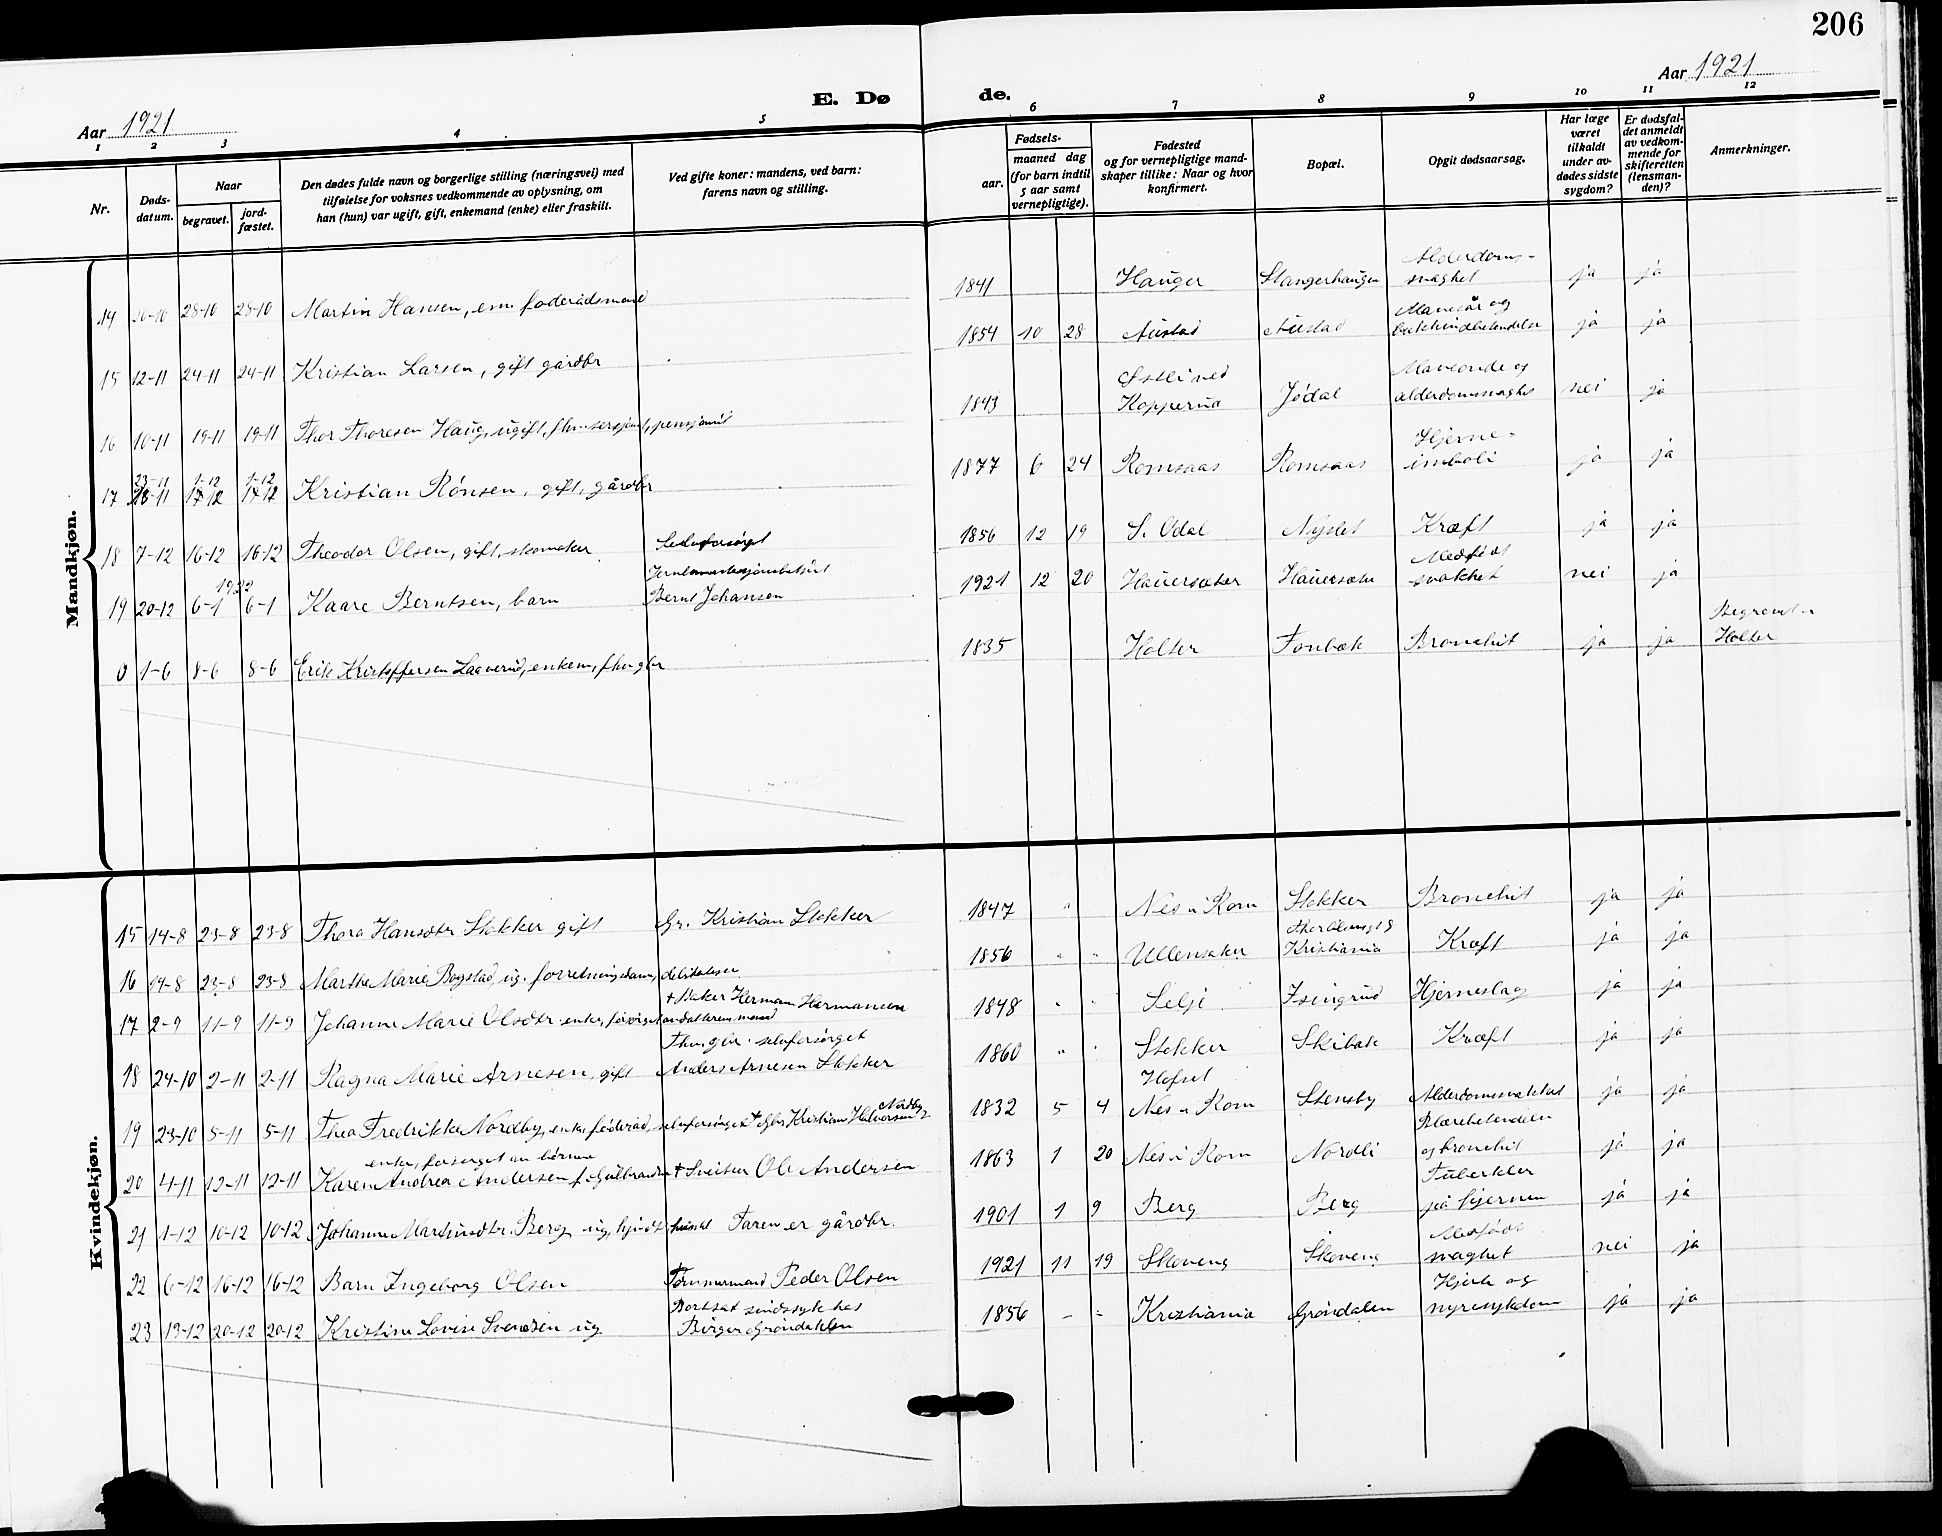 206
Aar 1921
E. Dø
de.
Aar 1921
1 2 3 4 5 6 7 8 9 10 11 12
Nr.
Døds-
datum.
Naar
begravet.
jord-
fæstet.
Den dødes fulde navn og borgerlige stilling (næringsvei) med
tilføielse for voksnes vedkommende av oplysning, om
han (hun) var ugift, gift, enkemand (enke) eller fraskilt.
Ved gifte koner: mandens, ved barn:
farens navn og stilling.
Fødsels-
aar.
maaned dag
(for barn indtil
5 aar samt
vernepligtige).
Fødested
og for vernepligtige mand-
skaper tillike: Naar og hvor
konfirmert.
Bopæl.
Opgit dødsaarsag.
Har læge
været
tilkaldt
under av-
dødes sidste
sygdom?
Er dødsfal-
det anmeldt
av vedkom-
mende for
skifteretten
(lensman-
den)?
Anmerkninger.
Mandkjøn.
14 28-10 28-10 Martin Hansen, em. føderådsmand 1841 Hauger Stangerhaugen Alderdoms-
svaghet ja ja
15 12-11 24-11 24-11 Kristian Larsen, gift gårdbr 1854 10 28 Austad Austad Mavesår og
ja ja
16 10-11 19-11 19-11 Thor Thoresen Haug, ugift, pensjonist 1843 ved
Kopperud Jødal Maveonde og
alderdomssvaghet nei ja
17 23-11 1-12 1-12 Kristian Rønsen, gift, gårdbr 1877 6 24 Romsaas Romsaas Hjerne-
imboli ja ja
18 7-12 16-12 16-12 Theodor Olsen, gift, skomaker Selvforsørget 1856 12 19 S. Odal Nyslet Kræft ja ja
19 20-12 1922
6-1 6-1 Kaare Berntsen, barn
Bernt Johansen 1921 12 20 Hauersæter Hauersæter Medfødt
svakhet nei ja
0 1-6 8-6 8-6 Erik Kristoffersen Laaverud, enkem, f hv gbr 1835 Holter Fonbæk Bronchit ja ja Begravet
Holter
Kvindekjøn.
15 14-8 23-8 23-8 Thora Hansdtr Stokker gift Gr. Kristian Stokker 1847 " Nes i Rom Stokker Bronchit ja ja
16 14-8 23-8 23-8 Marthe Marie Bogstad, ug. forretningsdame, delikatesser 1856 " " Ullensaker
Kristiania Kræft ja ja
17 2-9 11-9 11-9 Johanne Marie Olsdtr. enke, forsørget av datterens mand
+ Baker Herman Hermansen 1848 " " Selje Isingrud Hjerneslag ja ja
18 24-10 2-11 2-11 Ragna Marie Arnesen, gift
selvforsørget
Anders Arnesen Stokker 1860 " " Stokker Skibak Kræft ja ja
19 23-10 5-11 5-11 Thea Fredrikke Nordby, enke, føderåd, selvforsørget + Gbr. Kristian Halvorsen Nordby 1832 5 4 Hofset
Nes i Rom Stensby Alderdomssvakhet ja ja
20 4-11 12-11 12-11 enke, forsørget av børnene
Karen Andrea Andersen f. Gulbrandsen + Sveitser Ole Andersen 1863 1 20 Nes i Rom Nordli Blærebetendelse
og bronchit ja ja
21 1-12 10-12 10-12 Johanne Martinsdtr. Berg ug, Faren er gårdbr. 1901 1 9 Berg Berg Tuberkler
på hjernen ja ja
22 6-12 16-12 16-12 Barn Ingeborg Olsen Tømmermand Peder Olsen 1921 11 19 Skoveng Skoveng Medfødt
svaghet nei ja
23 13-12 20-12 20-12 Kristine Lovise Svendsen ug Bortsat sindssyk hos
Birger Grøndahlen 1856 - - Kristiania Grøndalen Hjerte og
nyresykdom ja ja